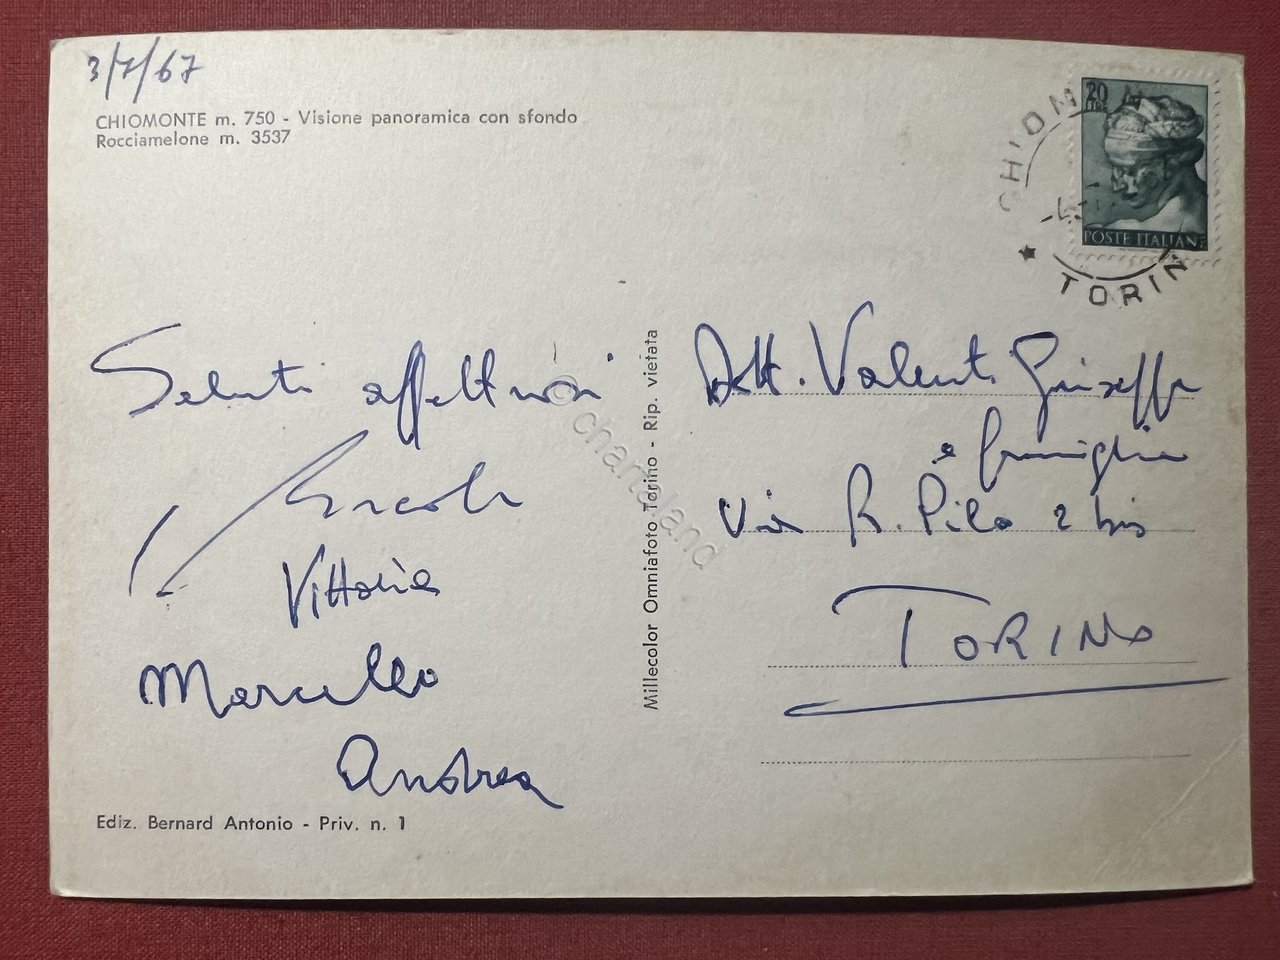 3/7/67
CHIOMONTE m. 750 - Visione panoramica con sfondo
Rocciamelone m. 3537
CHIOM
20
LIRE
POSTE ITALIANE
TORIN
Saluti affettuosi
Vittoria
Marcello
Andrea
Ediz. Bernard Antonio - Priv. n. 1
Millecolor Omniafoto Torino - Rip. vietata
© chartaland
Dott. Valenti Giuseppe
e famiglia
Via R. Pilo 2 bis
TORINO